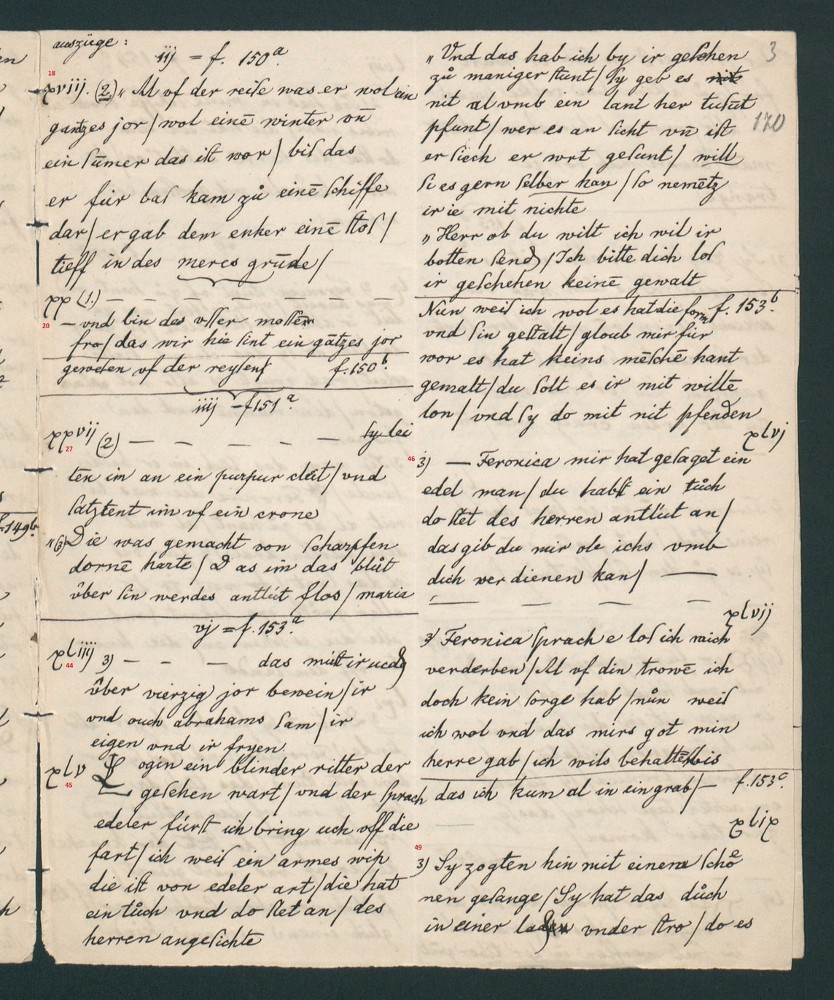 auszüge:
iij = f. 150a.
18
xviij. (2.) „Al vf der reise was er wol ein
gantzes jor / wol einē winter vn̄
ein sum̄er das ist wor / bis das
er für bas kam zů einē schiffe
dar / er gab dem enker einē stos /
tieff in des meres grūde /
xx (1.) — — — — — — — —
20
— vnd bin des vsser mossen
fro / das wir hie sint ein gātzes jor
gewesen vf der reysen f. 150b.
iiij = f 151a.
xxvij (2) — — — — — sy lei
27
ten im an ein purpur cleit / vnd
satztent im vf ein crone
„(3) Die was gemacht von scharpfen
dorne harte / Das im das blůt
über sin werdes antlit flos / maria
vj = f. 153a.
xliiij 3) — — — das müst ir
44
über vierzig jor bewein / ir
vnd ouch abrahams sam / ir
eigen vnd ir fryen.
xlv Login ein blinder ritter der
45
gesehen wart / vnd der sprach
edeler fürst ich bring uch vff die
fart / ich weis ein armes wip
die ist von edeler art / die hat
ein tůch vnd do stet an / des
herren angesichte
3
170
„Vnd das hab ich by ir gesehen
zů maniger stunt / sy geb es
nit al vmb ein lant her tusūt
pfunt / wer es an sicht vn̄ ist
er siech er wrt gesunt / will
si es gern selber han / so nemētz
ir ie mit nichte
„Herr ob du wilt ich wil ir
botten send / Ich bitte dich los
ir geschehen keinē gewalt
f. 153b.
Nun weis ich wol es hat die form
vnd sin gestalt / gloub mir für
wor es hat keins mēschē hant
gemalt / du solt es ir mit willē
lon / vnd sy do mit nit pfenden
xlvj
46
3) — Feronica mir hat gesaget ein
edel man / du habst ein tůch
do stet des herren antlüt an /
das gib du mir obe ichs vmb
dich verdienen kan / —
— — — —
xlvij
3) Feronica sprach e los ich mich
verderben / Al vf din trowē ich
doch kein sorge hab / nůn weis
ich wol vnd das mirs got min
herre gab / ich wils behalten bis
das ich kum al in ein grab / — f. 153c.
xlix
49
3) Sy zogten hin mit einem schö
nen gesange / Sy hat das důch
in einer laden vnder stro / do es